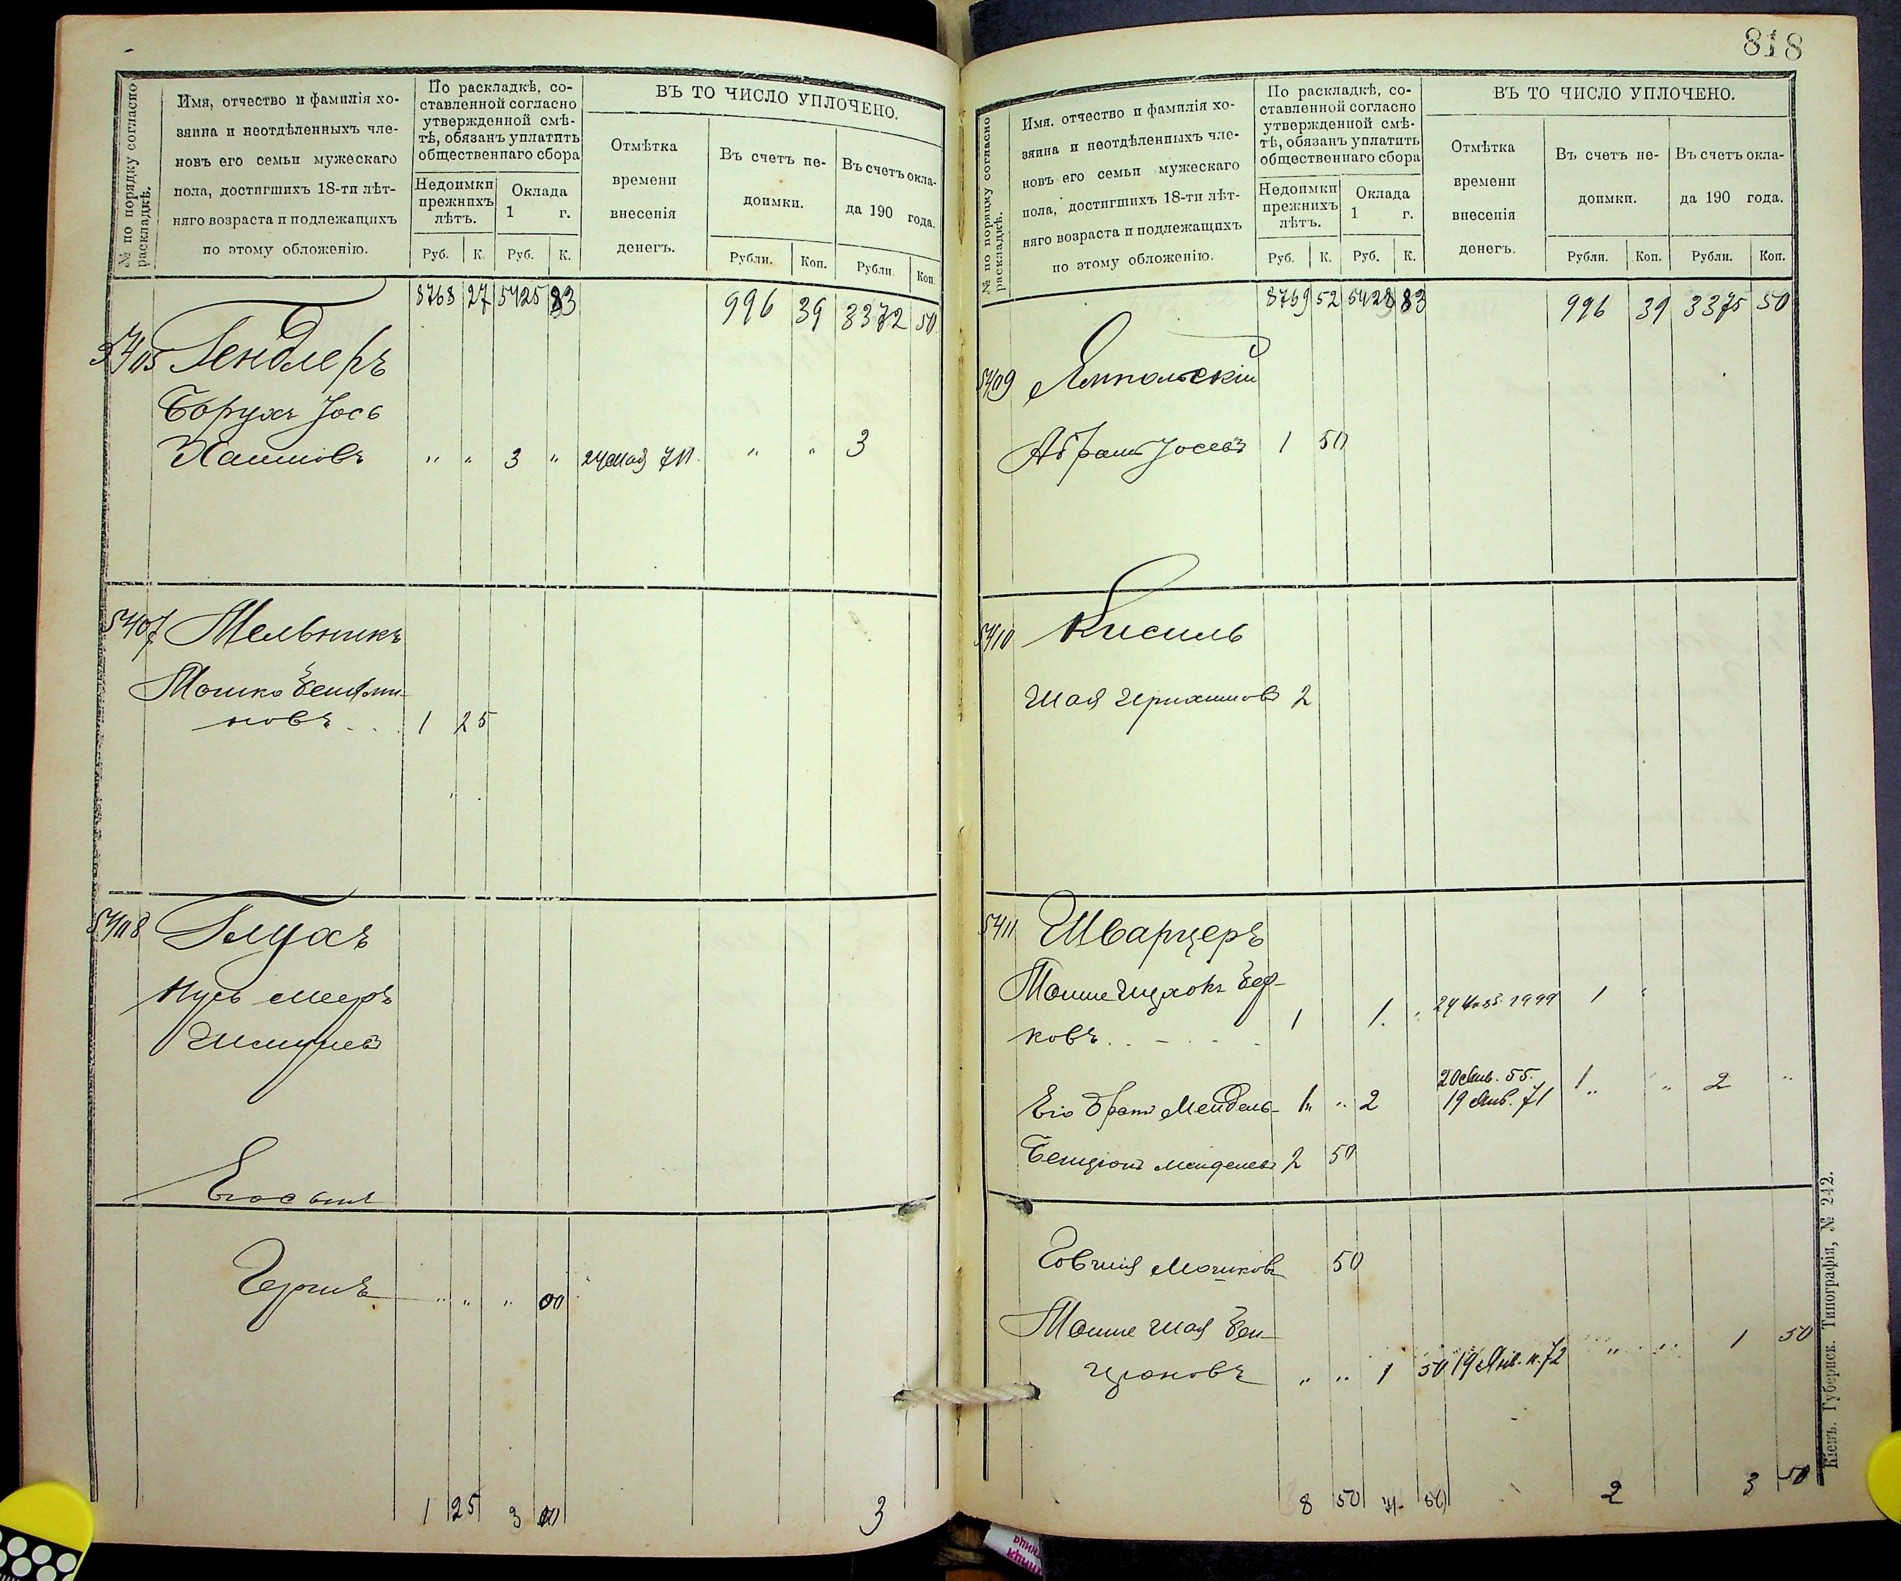 818
№ по порядку согласно раскладкѣ.
Имя, отчество и фамилія хо-
зяина и неотдѣленныхъ чле-
новъ его семьи мужескаго
пола, достигшихъ 18-ти лѣт-
няго возраста и подлежащихъ
по этому обложенію.
По раскладкѣ, со-
ставленной согласно
утвержденной смѣ-
тѣ, обязанъ уплатить
общественнаго сбора
Недоимки
прежнихъ
лѣтъ.
Оклада
1 г.
Руб. К. Руб. К.
ВЪ ТО ЧИСЛО УПЛОЧЕНО.
Отмѣтка
времени
внесенія
денегъ.
Въ счетъ не-
доимки.
Въ счетъ окла-
да 190 года.
Рубли. Коп. Рубли. Коп.
8768 27 5425 83 996 39 3372 50
5405 Гендлеръ
Борухъ Іось
Хаимовъ " " 3 " 24 мая 711. " " 3
5407 Мельникъ
Мошко Беньями-
новъ . . . 1 25
5408 Глухъ
Нусь Мееръ
Шмулевъ
Его сынъ
Гершъ " " " 00
1 25 3 00 3
№ по порядку согласно раскладкѣ.
Имя. отчество и фамилія хо-
зяина и неотдѣленныхъ чле-
новъ его семьи мужескаго
пола, достигшихъ 18-ти лѣт-
няго возраста и подлежащихъ
по этому обложенію.
По раскладкѣ, со-
ставленной согласно
утвержденной смѣ-
тѣ, обязанъ уплатить
общественнаго сбора
Недоимки
прежнихъ
лѣтъ.
Оклада
1 г.
Руб. К. Руб. К.
ВЪ ТО ЧИСЛО УПЛОЧЕНО.
Отмѣтка
времени
внесенія
денегъ.
Въ счетъ не-
доимки.
Въ счетъ окла-
да 190 года.
Рубли. Коп. Рубли. Коп.
8769 52 5428 83 996 39 3375 50
5409 Ямпольскій
Абрамъ Іосевъ 1 50
5410 Кисиль
Шая Ицихаимовъ 2
5411 Шварцеръ
Мошке Ицхокъ Бер-
ковъ . . - . . . 1 1 . 24 1999 1 "
Его братъ Мендель 1 " " 2 20 Янв. 55. 19 Янв. 71 1 " " 2 "
Бенціонъ Менделевъ 2 50
Говшія Мошковъ 50
Мошке Шая Бен-
ціоновъ " " 1 50 19 Янв. н. 72 " " 1 50
8 50 4 50 2 3 50
Кіевъ. Губернск. Типографія, № 242.